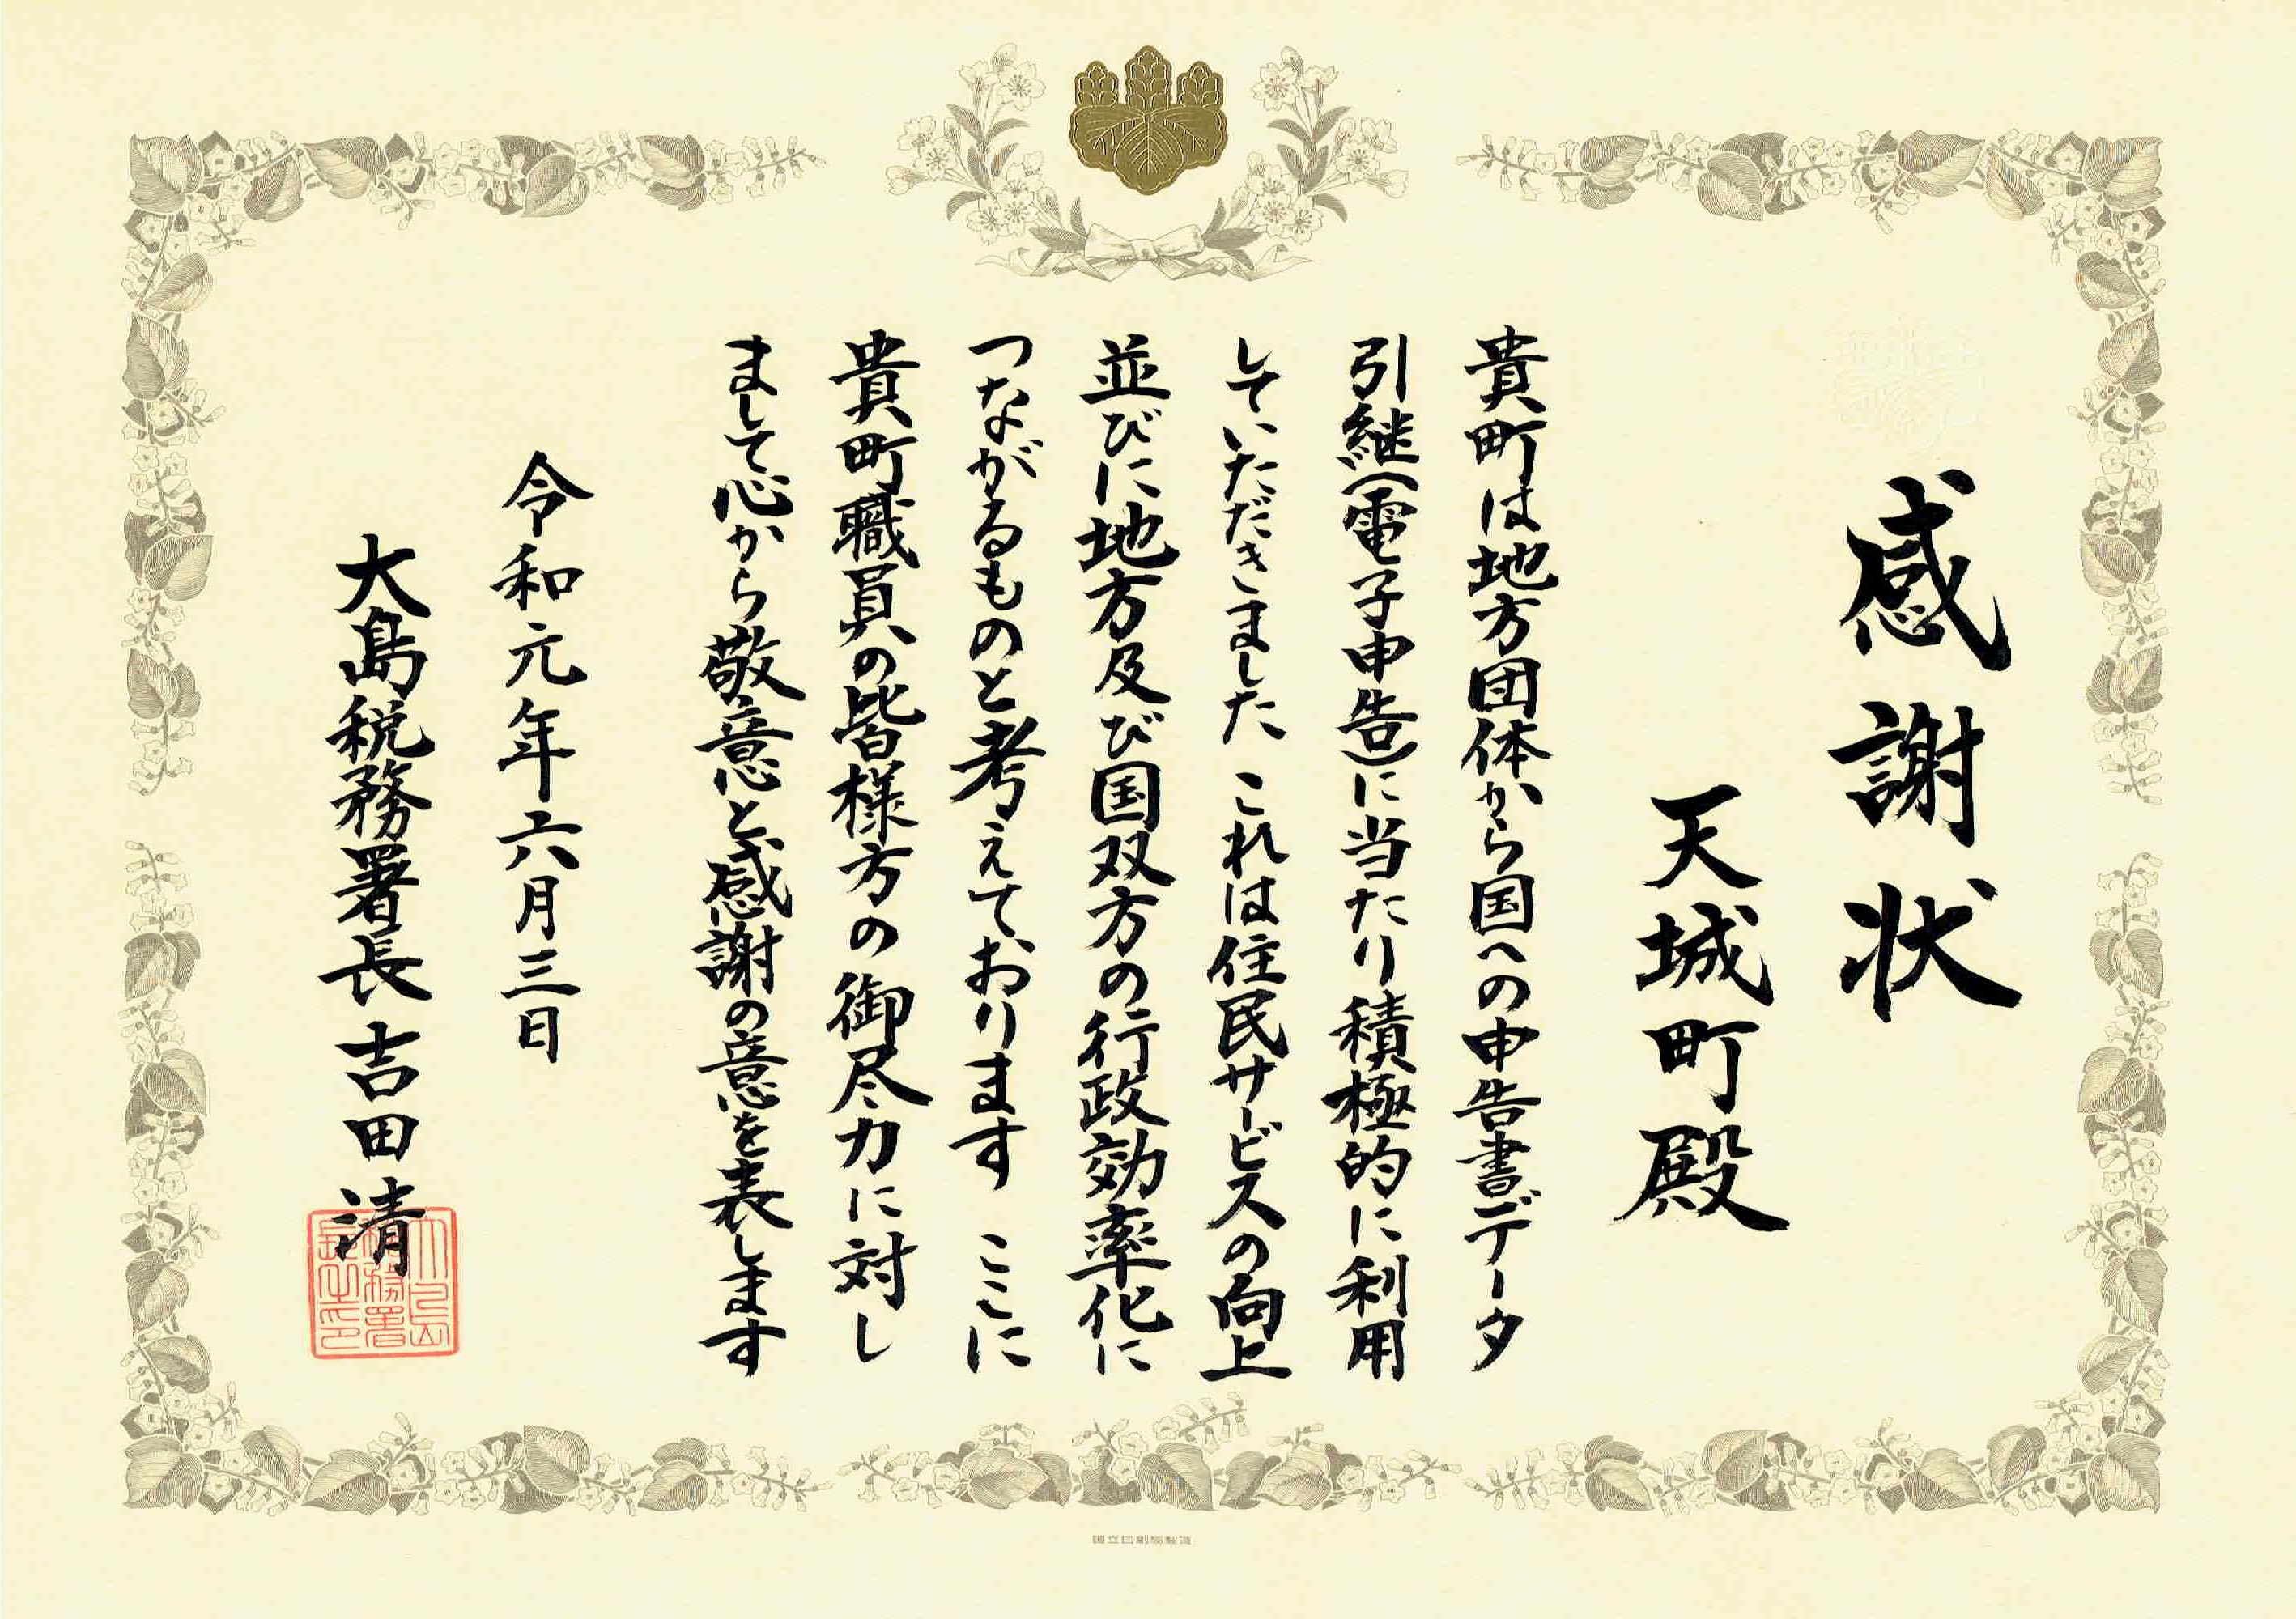 感謝状
天城町殿
貴町は地方団体から国への申告書データ
引継(電子申告)に当たり積極的に利用
していただきました これは住民サービスの向上
並びに地方及び国双方の行政効率化に
つながるものと考えております ここに
貴町職員の皆様方の御尽力に対し
まして心から敬意と感謝の意を表します
令和元年六月三日
大島税務署長 吉田 清
大島
税務署
長之印
国立印刷局製造